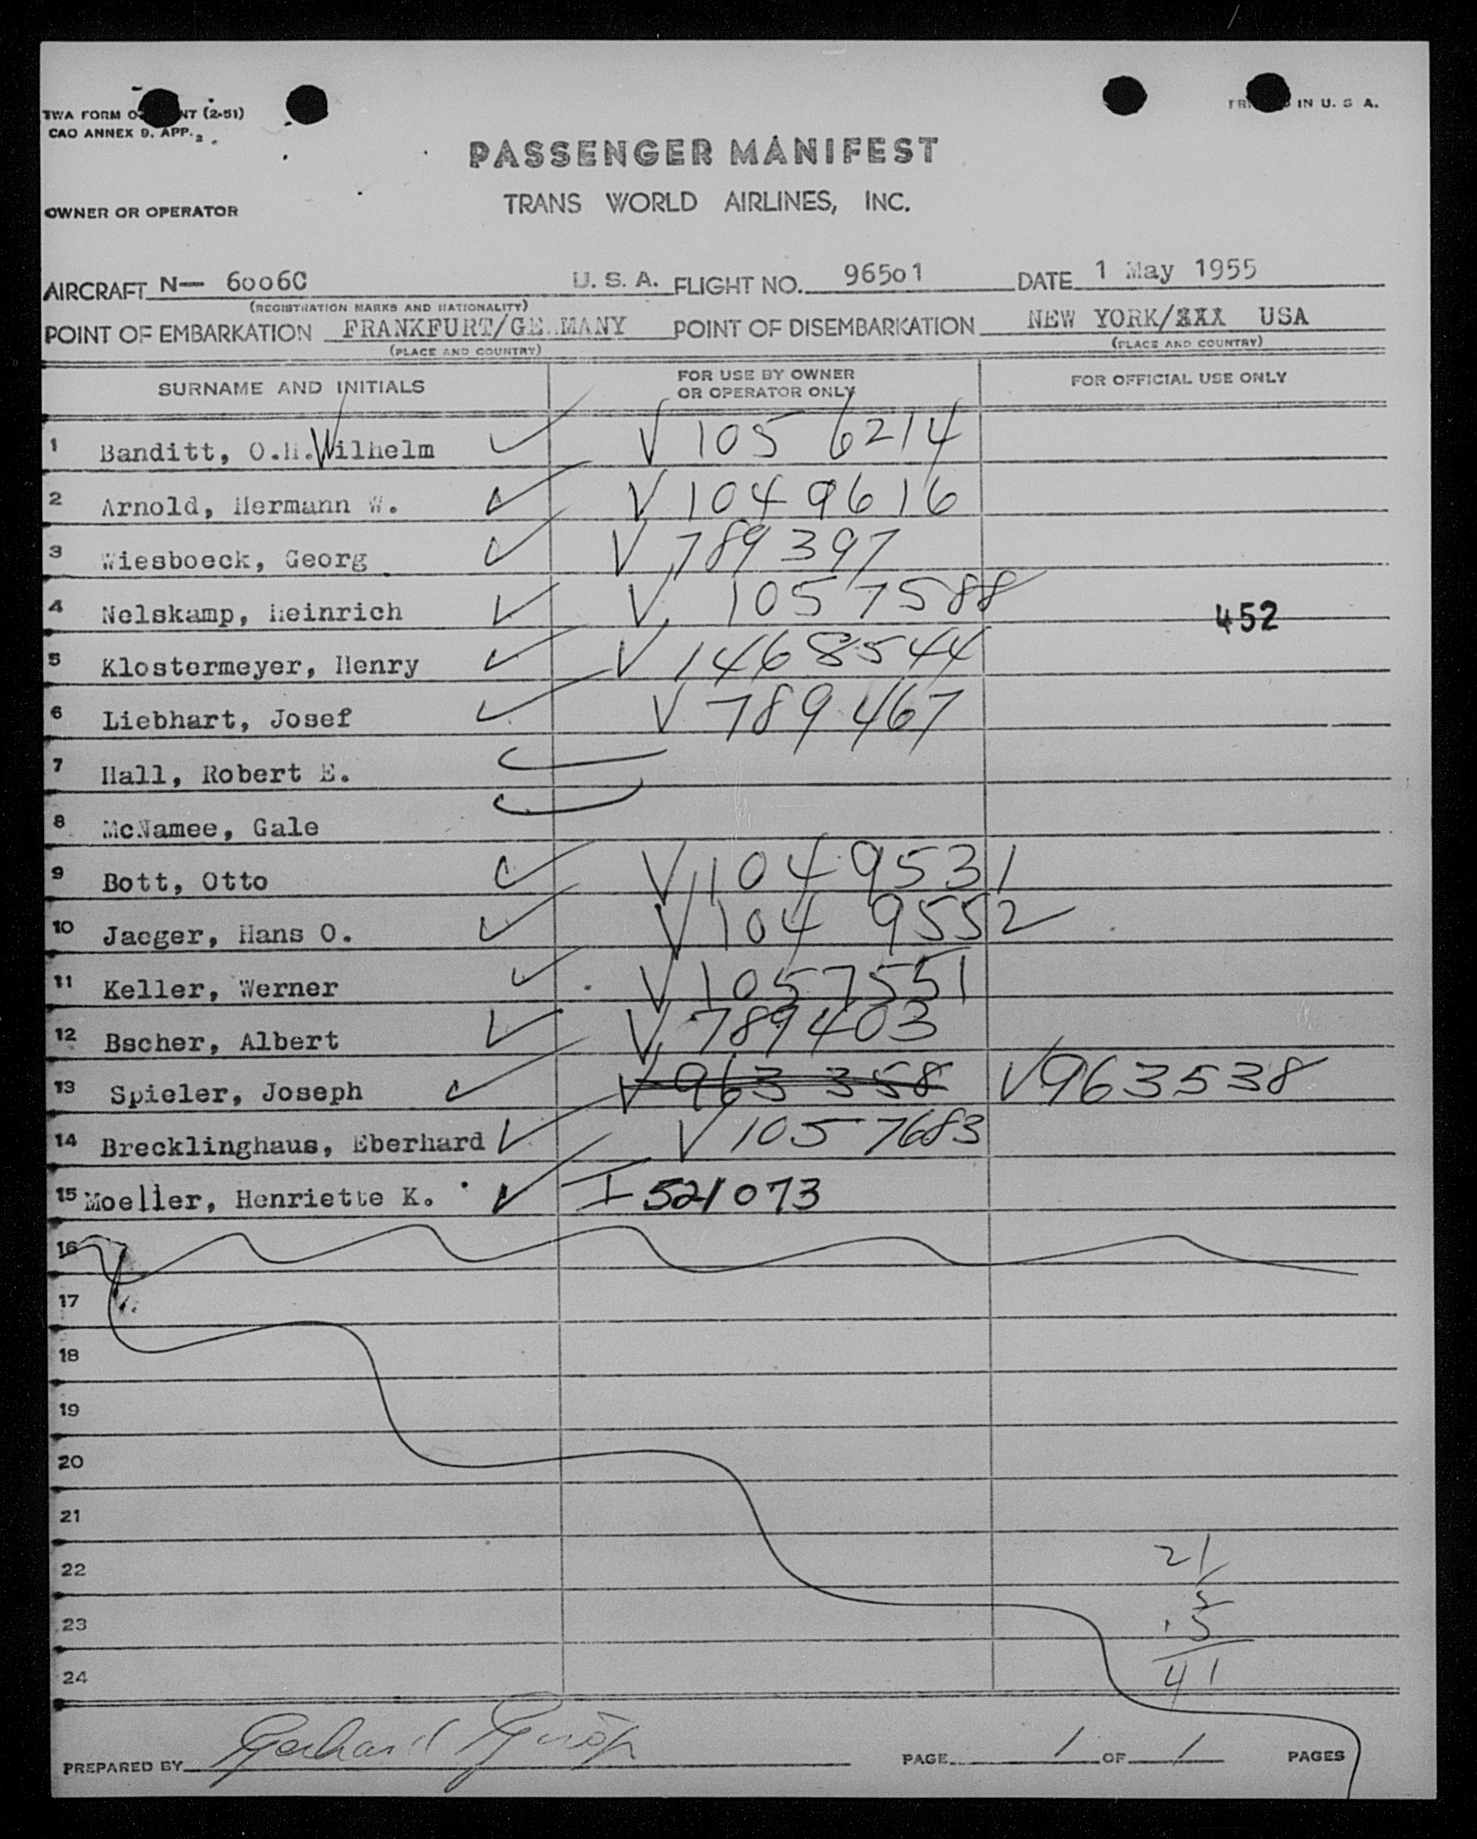 TWA FORM O NT (2-51)
CAO ANNEX 9. APP. 2
IN U. S A.
PASSENGER MANIFEST
TRANS WORLD AIRLINES, INC.
OWNER OR OPERATOR
AIRCRAFT N— 6006C U. S. A. FLIGHT NO. 96501 DATE 1 May 1955
(REGISTRATION MARKS AND NATIONALITY)
POINT OF EMBARKATION FRANKFURT/GE MANY POINT OF DISEMBARKATION NEW YORK/XXX USA
(PLACE AND COUNTRY) (PLACE AND COUNTRY)
SURNAME AND INITIALS FOR USE BY OWNER OR OPERATOR ONLY FOR OFFICIAL USE ONLY
1 Banditt, O.H.Wilhelm V 105 6214
2 Arnold, Hermann W. V 1049616
3 Wiesboeck, Georg V 789397
4 Nelskamp, Heinrich V 1057588 452
5 Klostermeyer, Henry V 1468544
6 Liebhart, Josef V 789467
7 Hall, Robert E.
8 McNamee, Gale
9 Bott, Otto V 1049531
10 Jaeger, Hans O. V 104 9552
11 Keller, Werner V 1057551
12 Bscher, Albert V 789403
13 Spieler, Joseph V 963 358 V963538
14 Brecklinghaus, Eberhard V 1057683
15 Moeller, Henriette K. I 521073
16
17
18
19
20
21
22 21
23
24 41
PREPARED BY Gerhard PAGE 1 OF 1 PAGES